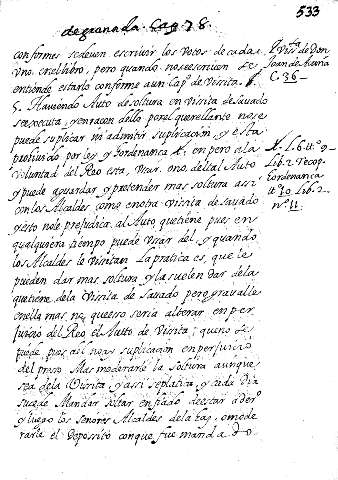 533
de granada. Cap. 78.
conformes se deven escrivir los votos de cada
uno en el libro, pero quando no se escriven se
entiende estarlo conforme a un Capº de Visita
5. Haviendo Auto de soltura en visita de savado
se executa, y en razon dello por el querellante no se
puede suplicar ni admitir suplicacion, y esta
prohivido por ley y ordenanza, en pero a la
voluntad del Reo esta, usar o no del tal Auto
y puede aguardar, y pretender mas soltura assi
con los Alcaldes como en otra visita de savado
y esto no le prejudica al Auto que tiene pues en
qualquiera tiempo puede usar del, y quando
los Alcaldes le visitan La pratica es, que le
pueden dar mas soltura y la suelen dar de la
que tiene de la visita de Savado pero gravalle
en ella mas, no, que esso seria alterar en per
juicio del Reo el Auto de Visita; que no se
puede, pues alli no ay suplicacion en perjuicio
del preso. Mas moderarle la soltura aunque
sea de la Visita, y assi se platica, y cada dia
sucede Mandar soltar en fiado, de estar a derº
y luego los señores Alcaldes de la Caº, o mode
rarle el Deposito conque fue mandado
Pº Vis. de Don
Juan de
C. 36
L. 6. tt. 9
Lib. 2. recop.
et ordenanza
tt. 30. Lib. 2.
nº. 11.